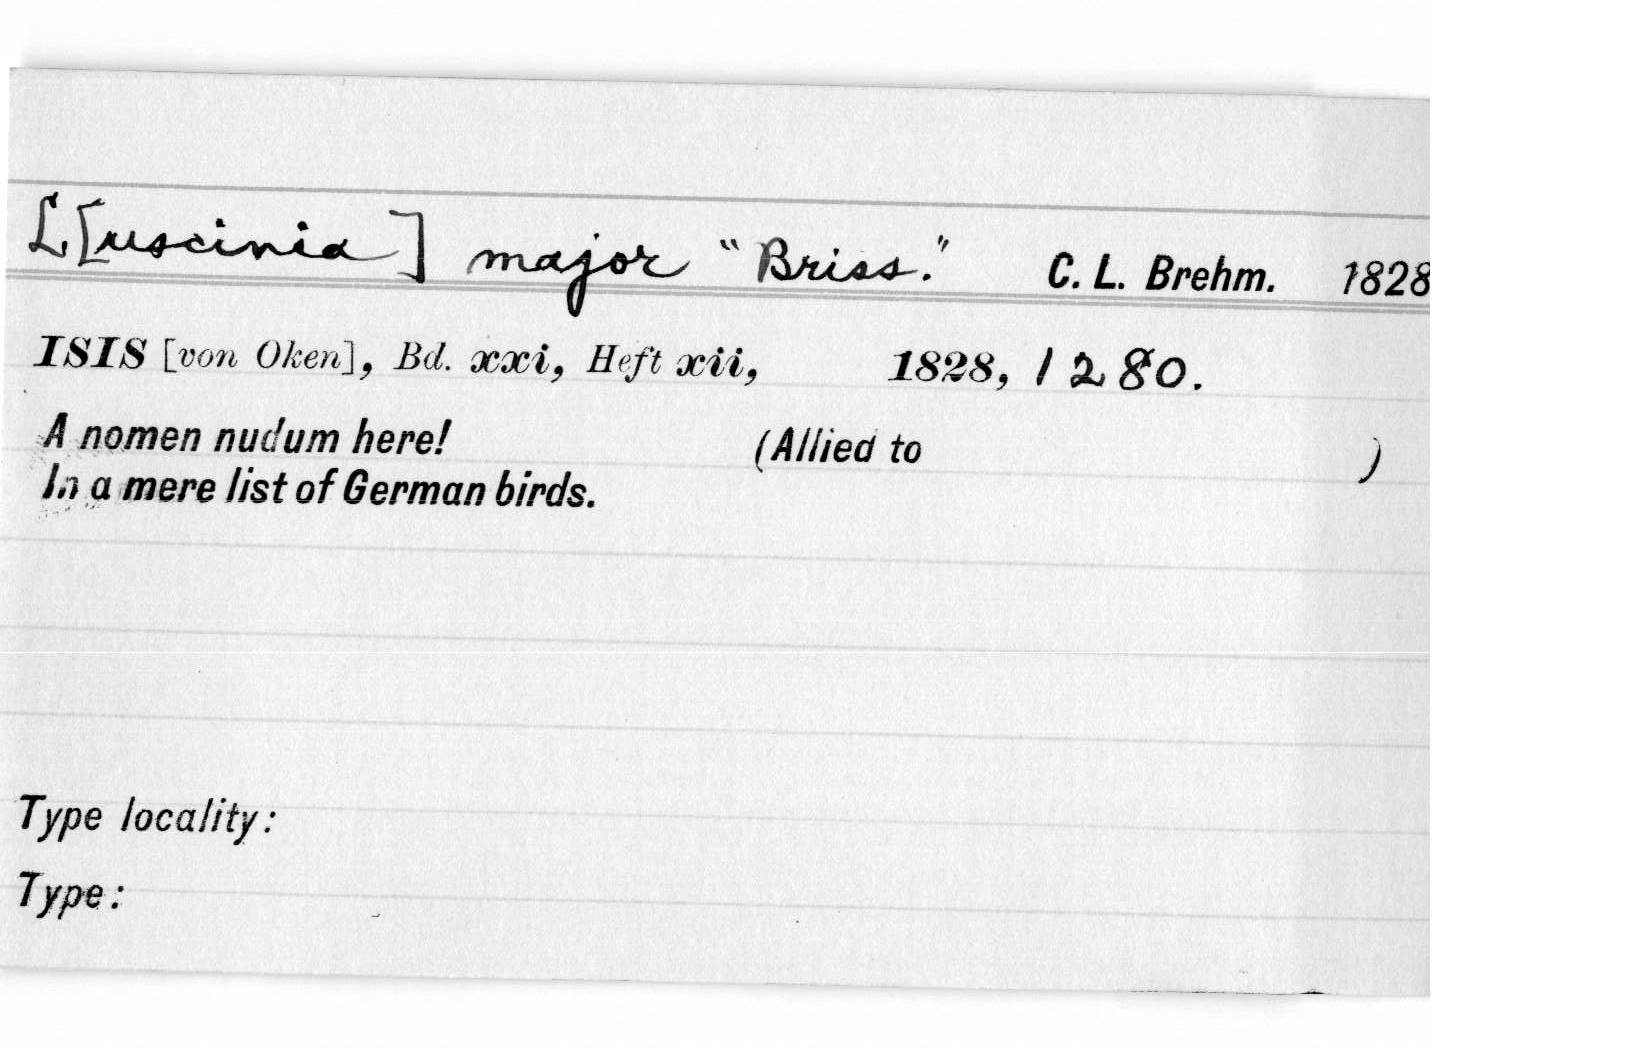 L[uscinia] major "Briss." C. L. Brehm. 1828
ISIS [von Oken], Bd. xxi, Heft xii, 1828, 1280.
A nomen nudum here! (Allied to )
In a mere list of German birds.
Type locality:
Type: